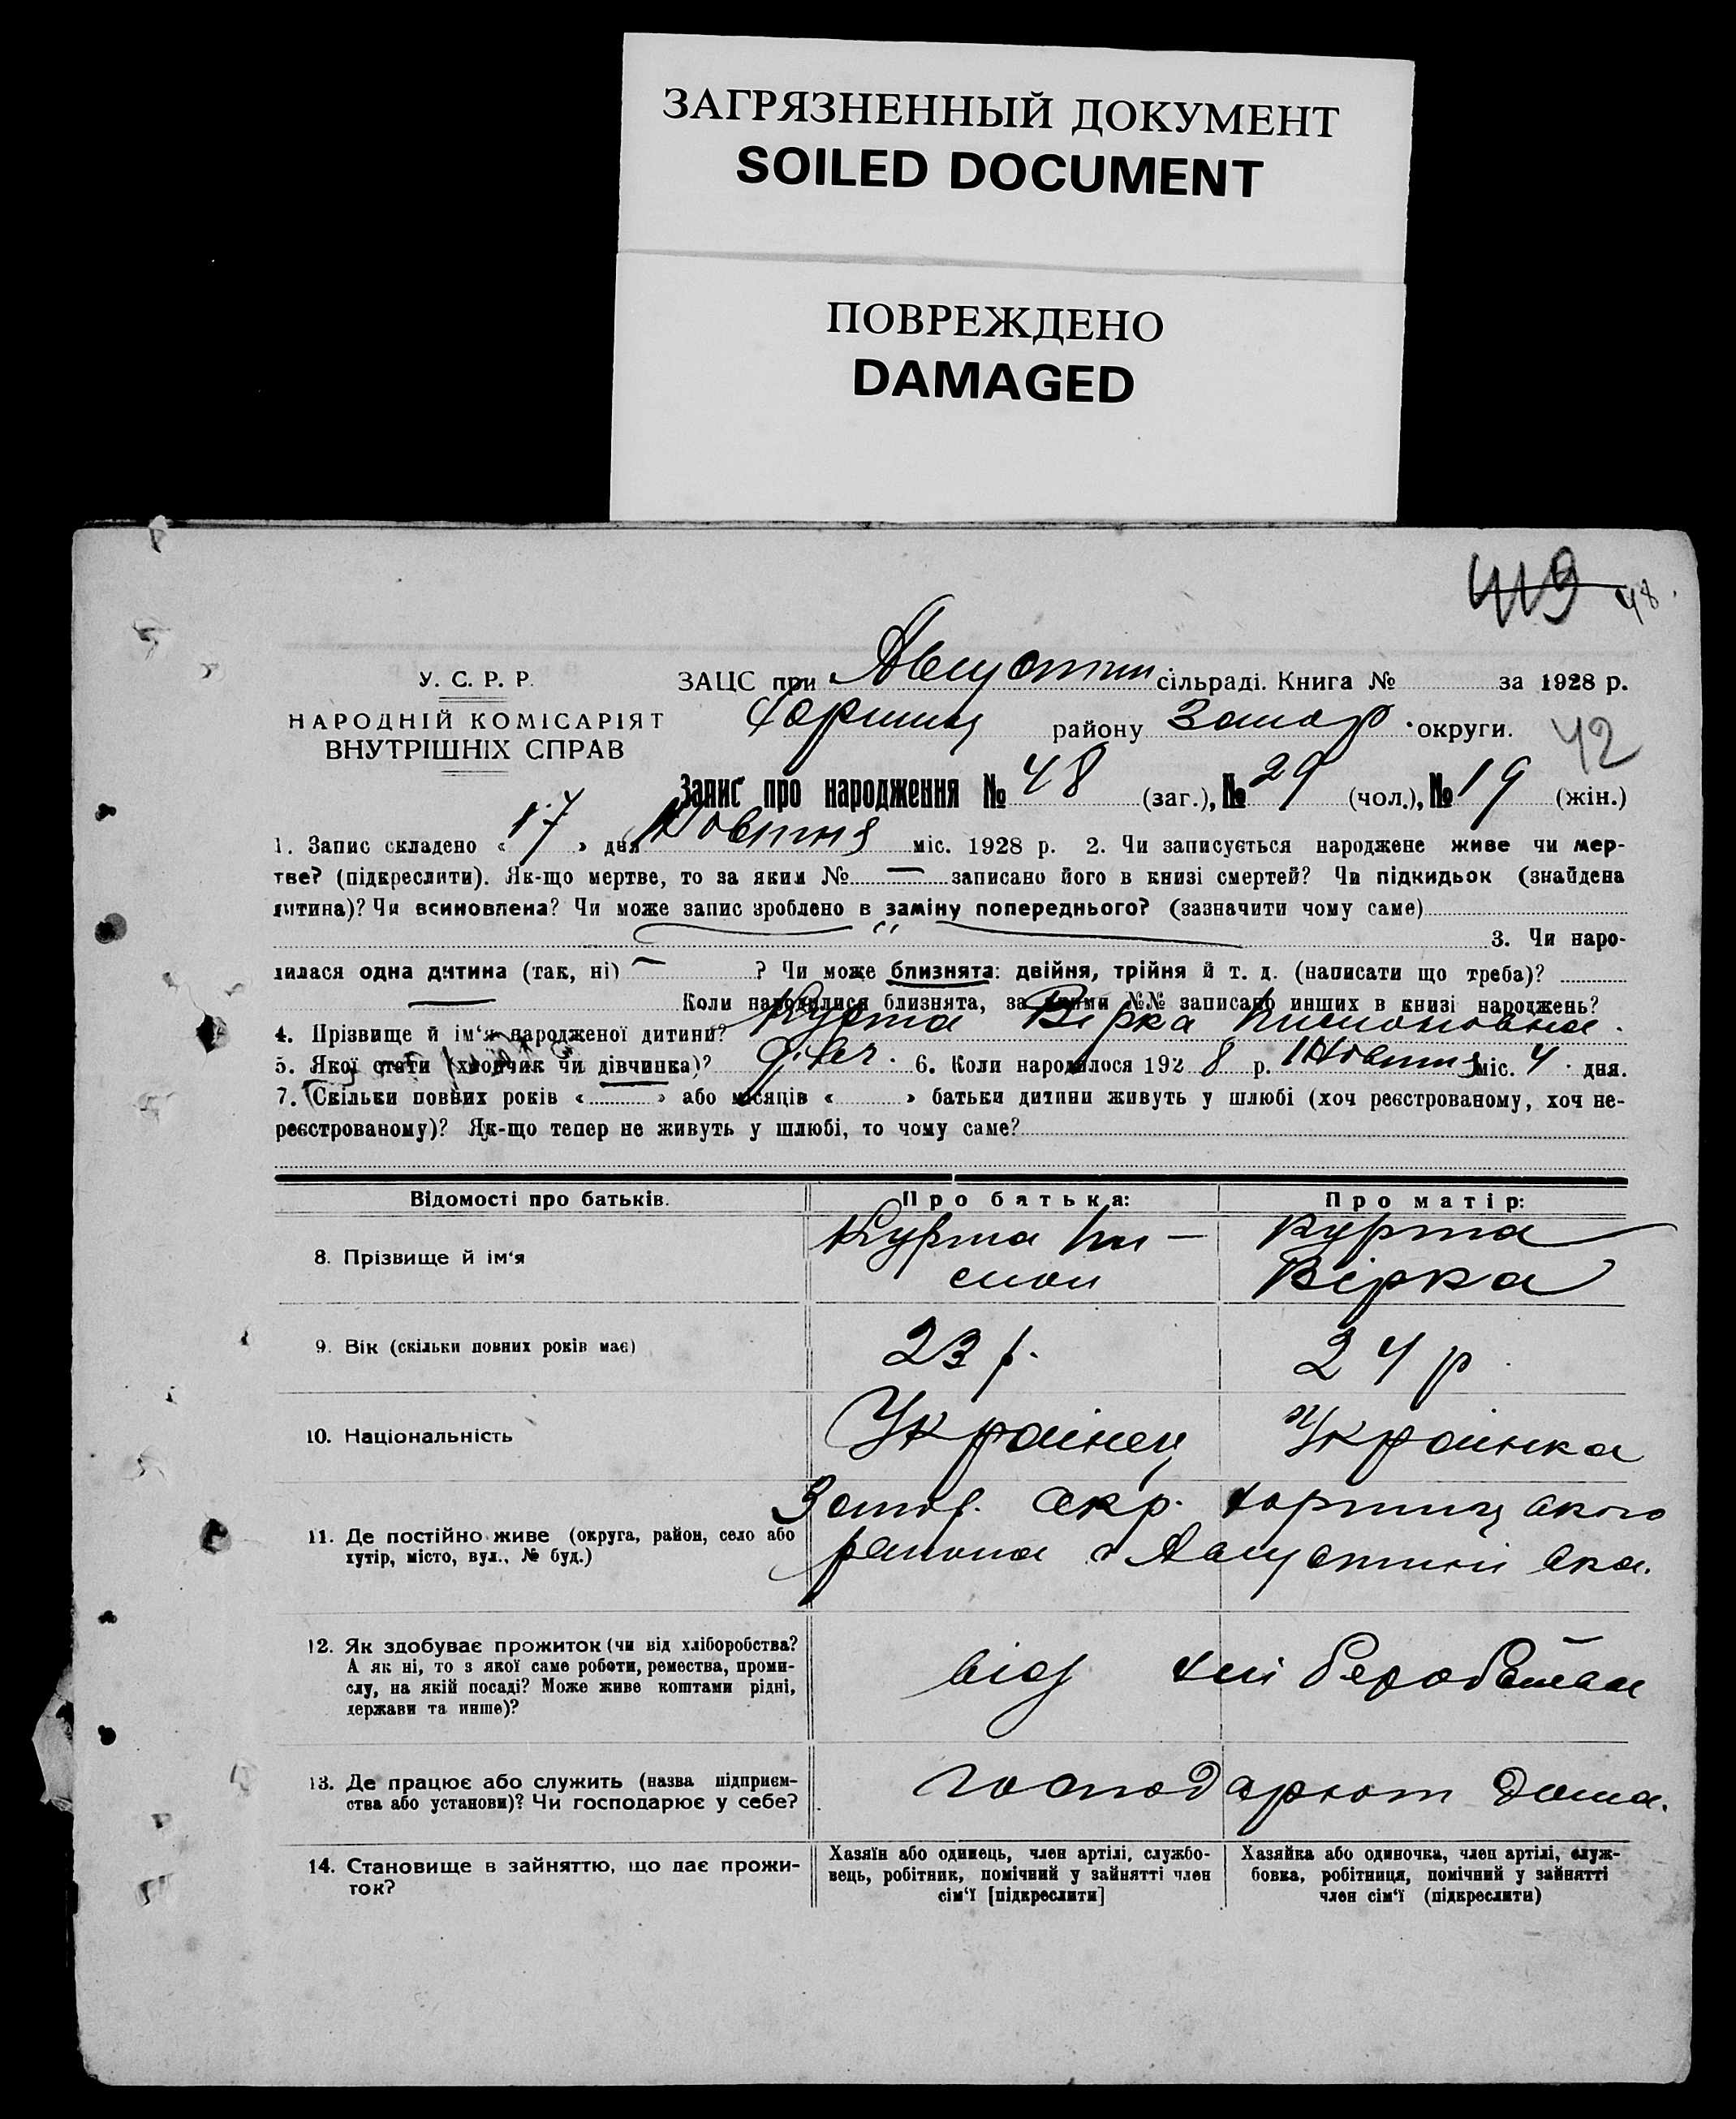 ЗАГРЯЗНЕННЫЙ ДОКУМЕНТ
SOILED DOCUMENT
ПОВРЕЖДЕНО
DAMAGED
419 48.
У. С. Р. Р.
НАРОДНІЙ КОМІСАРІЯТ
ВНУТРІШНІХ СПРАВ
ЗАЦС при Августин сільраді. Книга № за 1928 р.
Хортиц району Запор. округи.
42
Запис про народження № 48 (заг.), № 29 (чол.), № 19 (жін.)
1. Запис складено « 17 » дня Жовтня міс. 1928 р. 2. Чи записується народжене живе чи мер-
тве? (підкреслити). Як-що мертве, то за яким № — записано його в книзі смертей? Чи підкидьок (знайдена
дитина)? Чи всиновлена? Чи може запис зроблено в заміну попереднього? (зазначити чому саме)
3. Чи наро-
дилася одна дитина (так, ні) — ? Чи може близнята: двійня, трійня й т. д. (написати що треба)?
— Коли народилися близнята, за якими №№ записано инших в книзі народжень?
4. Прізвище й ім‘я народженої дитини? Курта Вірка
5. Якої стати (хлопчик чи дівчинка)? дівч. 6. Коли народилося 1928 р. Жовтня міс. 4 дня.
7. Скільки повних років « » або місяців « » батьки дитини живуть у шлюбі (хоч реєстрованому, хоч не-
реєстрованому)? Як-що тепер не живуть у шлюбі, то чому саме?
Відомості про батьків. Про батька: Про матір:
8. Прізвище й ім‘я Курта Курта
Вірка
9. Вік (скільки повних років має) 23 р. 24 р.
10. Національність Українец Українка
11. Де постійно живе (округа, район, село або
хутір, місто, вул., № буд.)
Запор. окр. Хортицького
района
12. Як здобуває прожиток (чи від хліборобства?
А як ні, то з якої саме роботи, ремества, проми-
слу, на якій посаді? Може живе коштами рідні,
держави та инше)?
від
13. Де працює або служить (назва підприєм-
ства або установи)? Чи господарює у себе?
господарюют дома.
14. Становище в зайняттю, що дає прожи-
ток?
Хазяїн або одинець, член артілі, службо-
вець, робітник, помічний у зайнятті член
сім‘ї [підкреслити]
Хазяйка або одиночка, член артілі, служ-
бовка, робітниця, помічний у зайнятті
член сім‘ї (підкреслити)